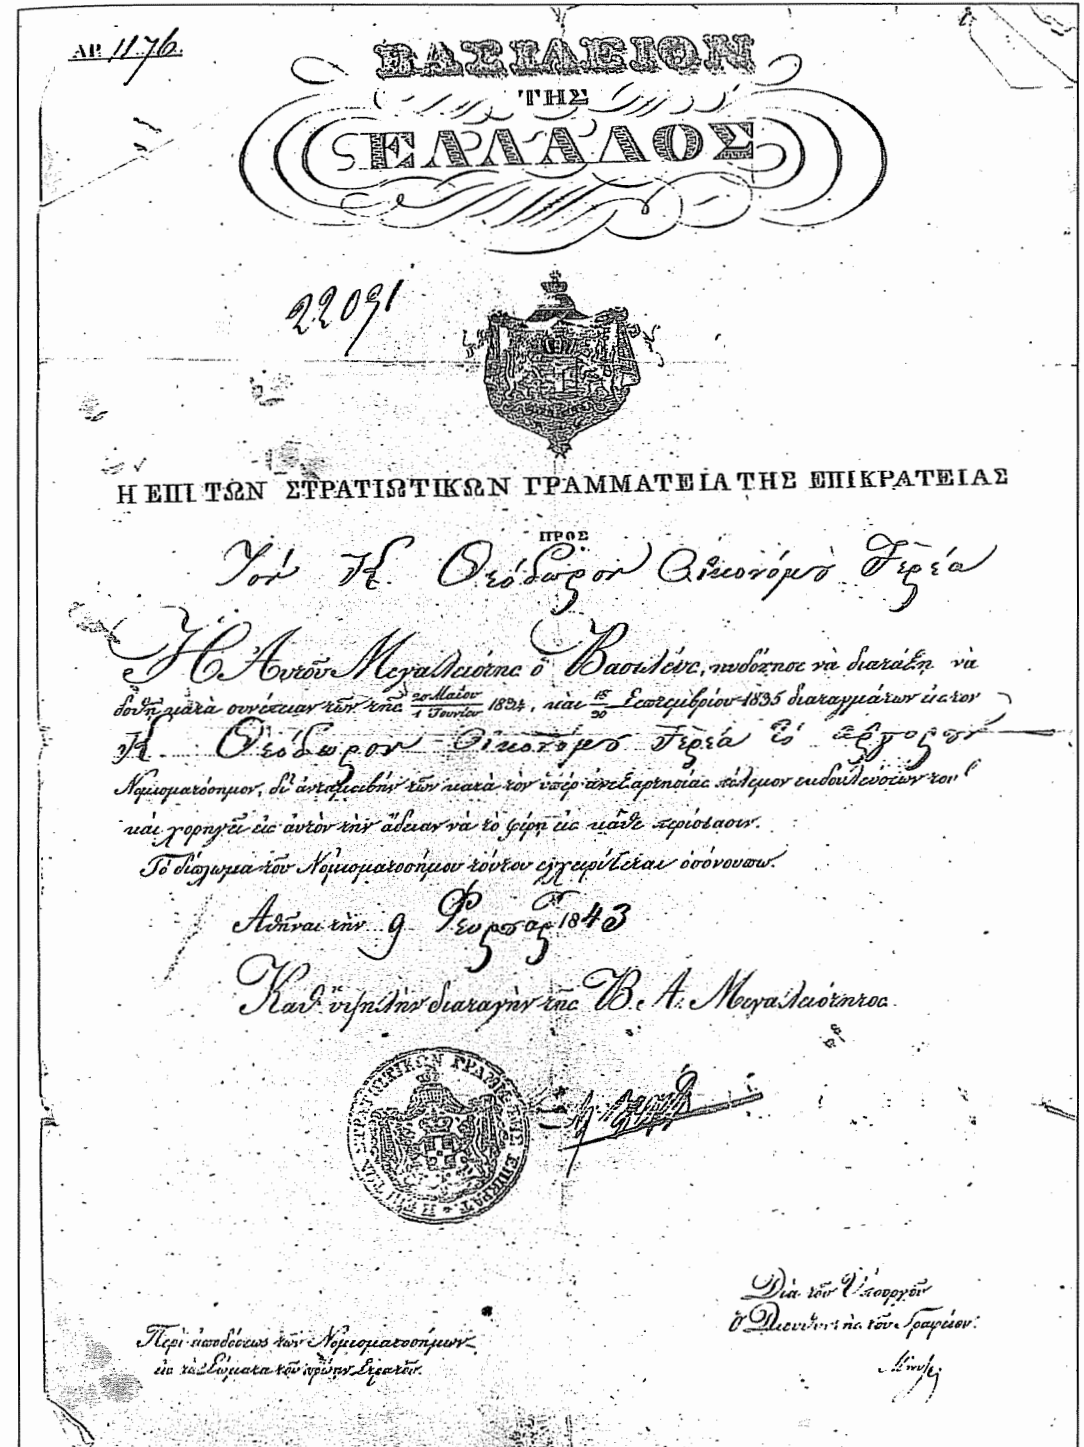 ΑΡ. 1176.
ΒΑΣΙΛΕΙΟΝ
ΤΗΣ
ΕΛΛΑΔΟΣ
22091
Η ΕΠΙ ΤΩΝ ΣΤΡΑΤΙΩΤΙΚΩΝ ΓΡΑΜΜΑΤΕΙΑ ΤΗΣ ΕΠΙΚΡΑΤΕΙΑΣ
ΠΡΟΣ
Τὸν Κ. Θεόδωρον Οἰκονόμου Ἱερέα
Ἡ Αὑτοῦ Μεγαλειότης ὁ Βασιλεύς, ηυδόκησε νὰ διατάξῃ νὰ
δοθῇ κατὰ συνέπειαν τῶν τῆς 20 Μαΐου / 1 Ἰουνίου 1834, καὶ 18/30 Σεπτεμβρίου 1835 διαταγμάτων εἰς τὸν
Κ. Θεόδωρον Οἰκονόμου Ἱερέα τὸ ἀργυροῦν
Νομισματόσημον, δι' ἀνταμοιβὴν τῶν κατὰ τὸν ὑπὲρ ἀνεξαρτησίας πόλεμον εκδουλεύσεών του
καὶ χορηγεῖ εἰς αὐτὸν τὴν ἄδειαν νὰ τὸ φέρῃ εἰς κάθε περίστασιν.
Τὸ δίπλωμα τοῦ Νομισματοσήμου τούτου εγχειρίζεται οπόνουπω.
Ἀθῆναι τὴν 9 Φευρουαρ 1843
Καθ' ὑψηλὴν διαταγὴν τῆς Β. Α. Μεγαλειότητος.
Η ΕΠΙ ΤΩΝ ΣΤΡΑΤΙΩΤΙΚΩΝ ΓΡΑΜΜ. ΤΗΣ ΕΠΙΚΡΑΤ.
Διὰ τοῦ Ὑπουργοῦ
Ὁ Διευθυντὴς τοῦ Γραφείου.
Περὶ ἀποδόσεως τῶν Νομισματοσήμων
εἰς τὰ Σώματα τοῦ πρώην Στρατοῦ.